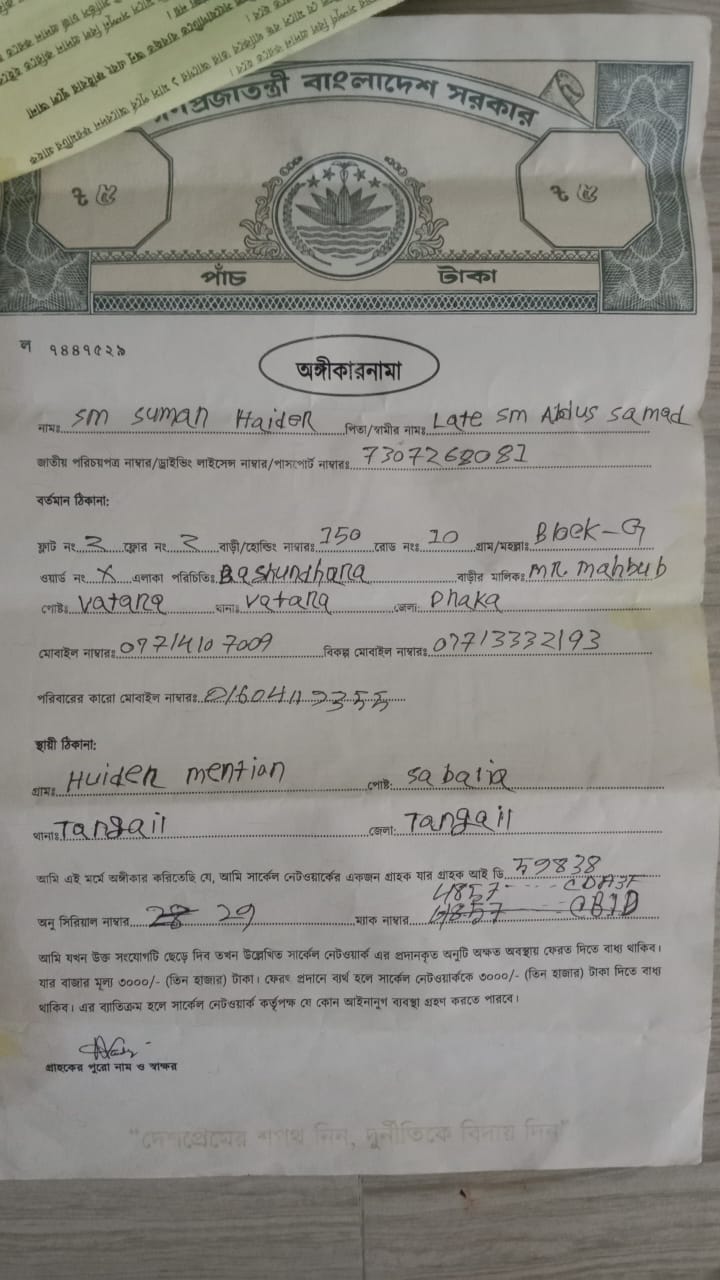 গণপ্রজাতন্ত্রী বাংলাদেশ সরকার
৳ ৫ ৳ ৫
পাঁচ টাকা
ল ৭৪৪৭৫২৯
অঙ্গীকারনামা
নামঃ SM Suman Haider পিতা/স্বামীর নামঃ Late SM Abdus Samad
জাতীয় পরিচয়পত্র নাম্বার/ড্রাইভিং লাইসেন্স নাম্বার/পাসপোর্ট নাম্বারঃ 7307268081
বর্তমান ঠিকানা:
ফ্লাট নং 2 ফ্লোর নং 2 বাড়ী/হোল্ডিং নাম্বারঃ 150 রোড নংঃ 10 গ্রাম/মহল্লাঃ Block-G
ওয়ার্ড নং X এলাকা পরিচিতিঃ Bashundhara বাড়ীর মালিকঃ MR. Mahbub
পোষ্টঃ Vatara থানাঃ Vatara জেলা: Dhaka
মোবাইল নাম্বারঃ 01714107009 বিকল্প মোবাইল নাম্বারঃ 01713332193
পরিবারের কারো মোবাইল নাম্বারঃ
স্থায়ী ঠিকানা:
গ্রামঃ Huider mention পোষ্ট: Sabalia
থানাঃ Tangail জেলা: Tangail
আমি এই মর্মে অঙ্গীকার করিতেছি যে, আমি সার্কেল নেটওয়ার্কের একজন গ্রাহক যার গ্রাহক আই ডি 59838
4857 CDA3F
অনু সিরিয়াল নাম্বার 29 ম্যাক নাম্বার
আমি যখন উক্ত সংযোগটি ছেড়ে দিব তখন উল্লেখিত সার্কেল নেটওয়ার্ক এর প্রদানকৃত অনুটি অক্ষত অবস্থায় ফেরত দিতে বাধ্য থাকিব।
যার বাজার মূল্য ৩০০০/- (তিন হাজার) টাকা। ফেরৎ প্রদানে ব্যর্থ হলে সার্কেল নেটওয়ার্ককে ৩০০০/- (তিন হাজার) টাকা দিতে বাধ্য
থাকিব। এর ব্যতিক্রম হলে সার্কেল নেটওয়ার্ক কর্তৃপক্ষ যে কোন আইনানুগ ব্যবস্থা গ্রহণ করতে পারবে।
গ্রাহকের পুরো নাম ও স্বাক্ষর
"দেশপ্রেমের শপথ নিন, দুর্নীতিকে বিদায় দিন"